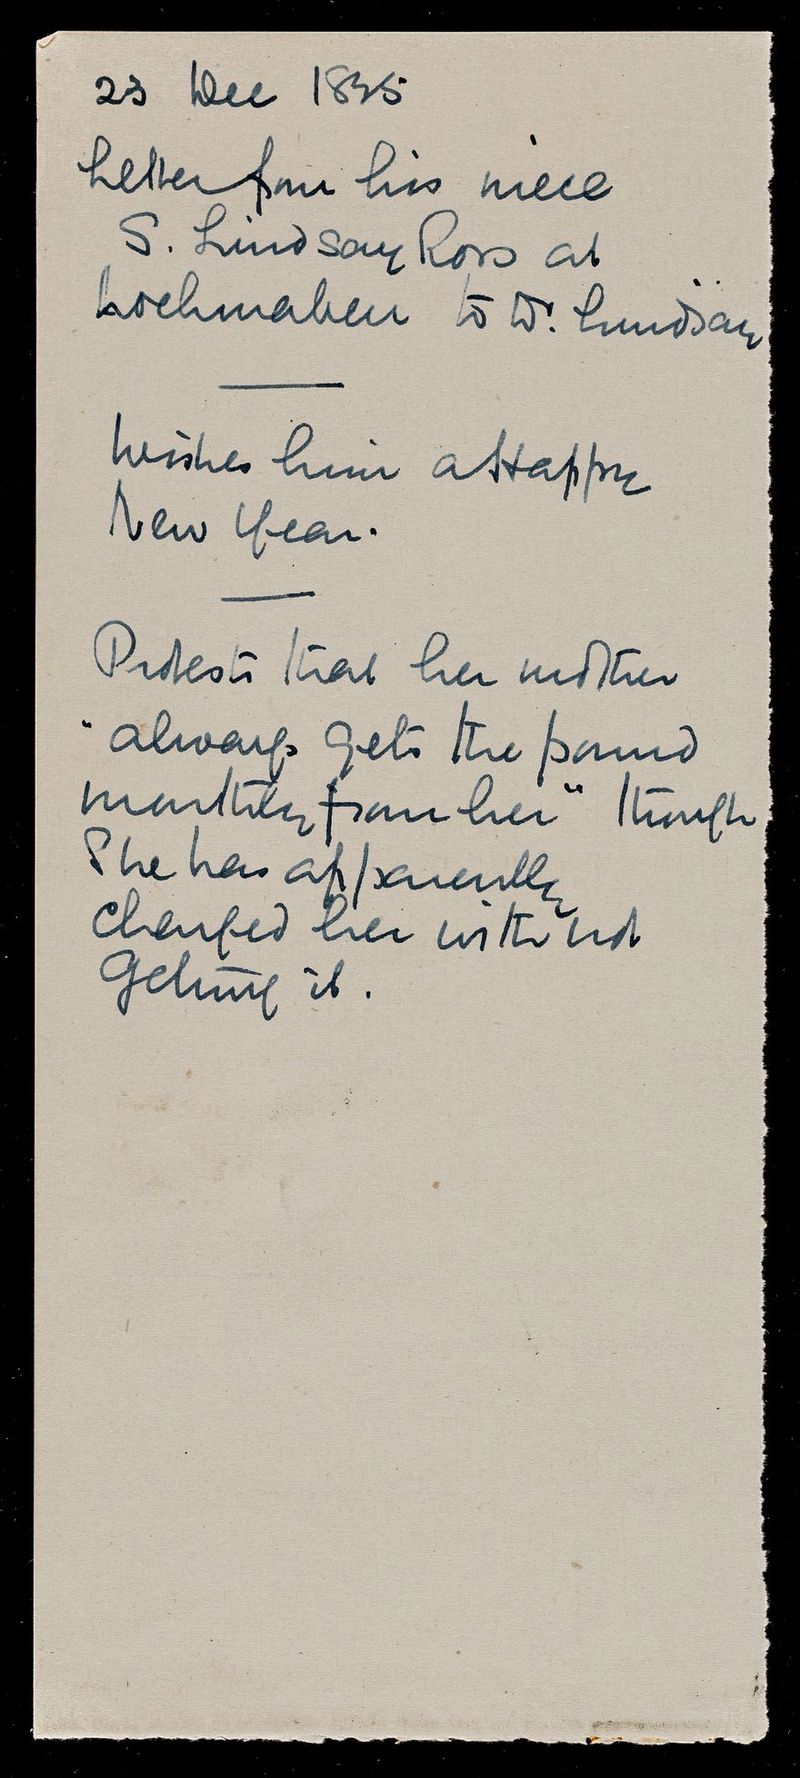 23 Dec 1835
Letter from his niece
S. Lindsay Ross at
Lochmaben to Dr. Lindsay
Wishes him a Happy
New Year.
Protests that her mother
"always gets the pound
monthly from her" though
She has apparently
charged her with not
getting it.